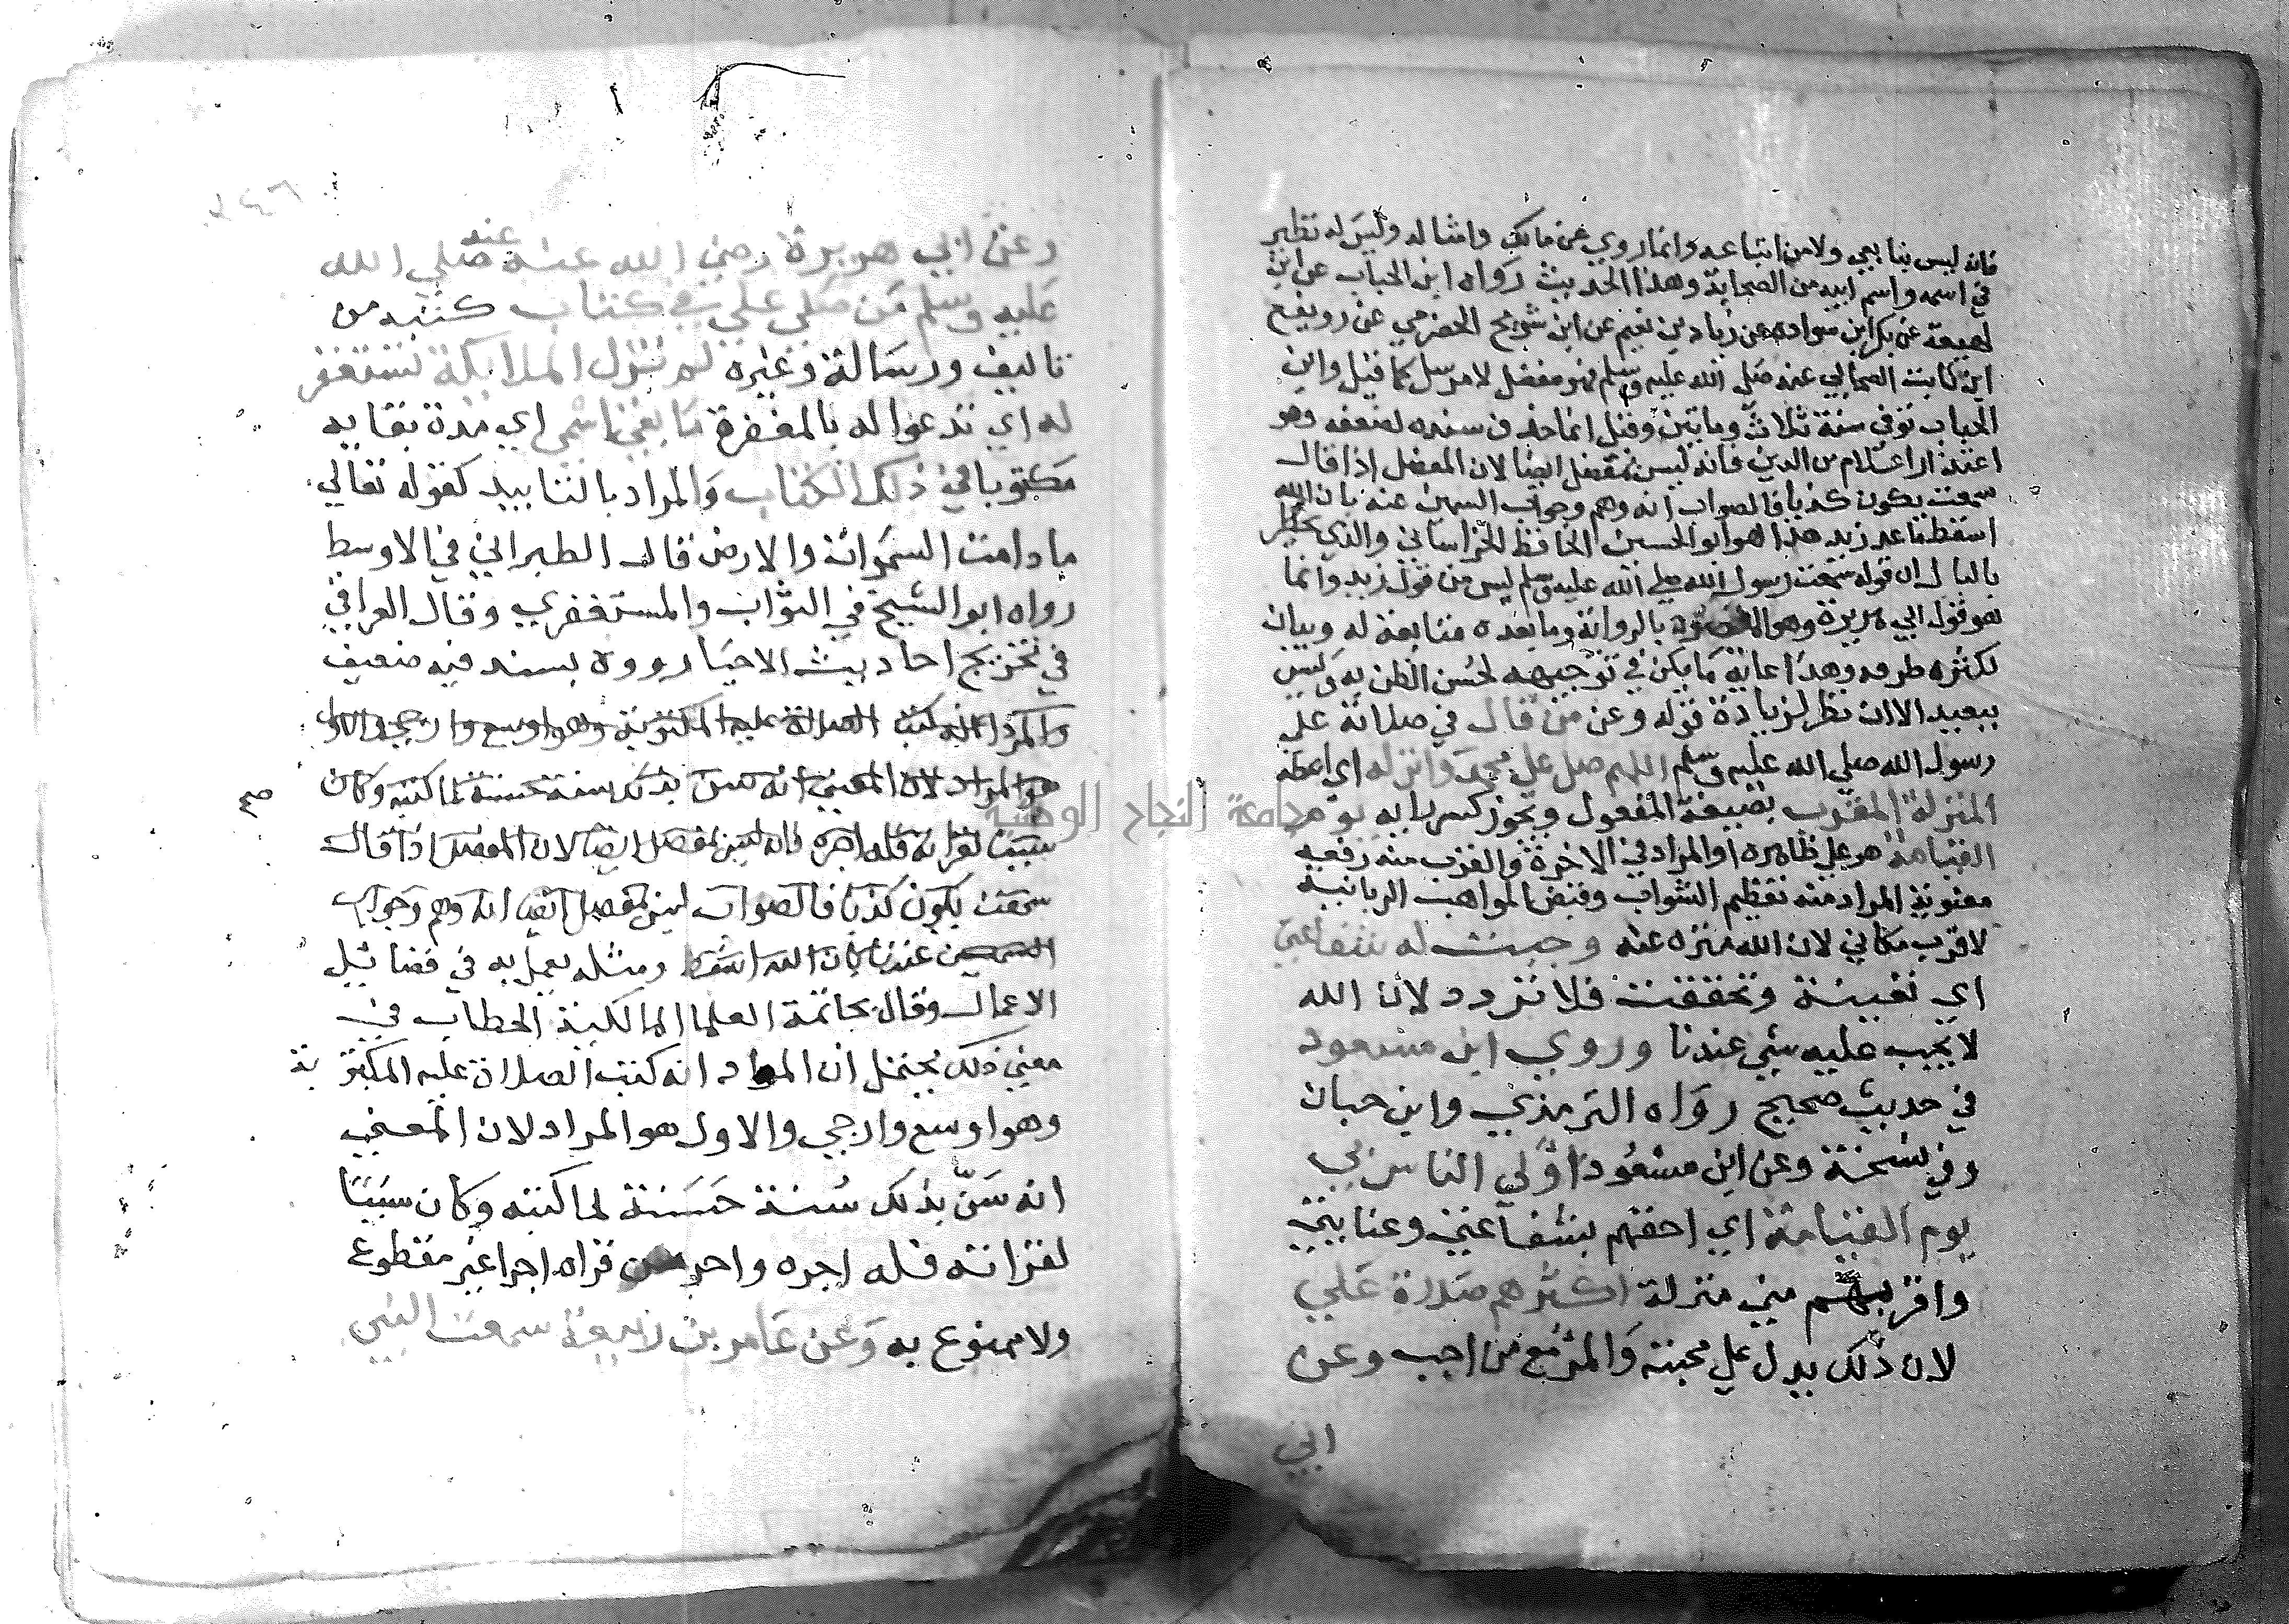 فانه ليس بتابعي ولا من اتباعه وانما روي عن مالك وامثاله وليس له نظير
في اسمه واسم ابيه من الصحابة وهذا الحديث رواه ابن الحباب عن ابن
لهيعة عن بكر ابن سوادة عن زياد بن نعيم عن ابن شريح الحضرمي عن رويفع
ابن ثابت الصحابي عنه صلي الله عليه وسلم فهو معضل لا مرسل كما قيل وابن
الحباب توفي سنة ثلاث ومايتين وقيل انما حذف سنده لضعفه وهو
من الدين فانه ليس بمعضل ايضا لان المعضل اذا قال
سمعت يكون كذبا فالصواب انه وهم وجواب السمين عنه بان
زيد هذا هو ابو الحسين الحافظ الخراساني والذي يخطر
بالبال ان قوله سمعت رسول الله صلي الله عليه وسلم ليس من قول زيد وانما
هو قول ابي هريرة وهو بالرواية وما بعده متابعة له وبيان
لكثرة طرقه وهذا غاية ما يمكن في توجيهه لحسن الظن به وليس
ببعيد الا ان نظر لزيادة قوله وعن من قال في صلاته علي
رسول الله صلي الله عليه وسلم اللهم صل علي محمد وانزله اي اعطه
المنزلة المقرب بصيغة المفعول ويجوز كسر رايه يوم
القيامة هو علي ظاهره او المراد في الاخرة والقرب منه رفعة
معنوية المراد منه تعظيم الثواب وفيض المواهب الربانية
لا قرب مكاني لان الله منزه عنه وجبت له شفاعتي
اي تعينت وتحققت فلا تردد لان الله
لا يجب عليه شي عندنا وروي ابن مسعود
في حديث صحيح رواه الترمذي وابن حبان
وفي نسخة وعن ابن مسعود اولي الناس بي
يوم القيامة اي احقهم بشفاعتي وعنايتي
واقربهم مني منزلة اكثرهم صلاة علي
لان ذلك يدل علي محبته والمرء مع من احب وعن
ابي
وعن ابي هريرة رضي الله عنه عنه صلي الله
عليه وسلم من صلي علي في كتاب كتبه من
تاليف ورسالة وغيره لم تزل الملايكة تستغفر
له اي تدعوا له بالمغفرة ما بقي اسمي اي مدة بقايه
مكتوبا في ذلك الكتاب والمراد بالتابيد كقوله تعالي
ما دامت السموات والارض قال الطبراني في الاوسط
رواه ابو الشيخ في الثواب والمستغفري وقال العراقي
في تخريج احاديث الاحيا رووه بسند فيه ضعيف
والمراد انه كتب الصلاة عليه المكتوبة وهو اوسع وارجي والاول
هو المراد لان المعني انه سن بذلك سنة حسنة لما كتبه وكان
صح
سببا لقراته فله اجره فانه ليس بمعضل ايضا لان المعضل اذا قال
سمعت يكون كذبا فالصواب ليس بمعضل ايضا انه وهم وجواب
السمين عندنا بان ومثله يعمل به في فضائيل
الاعمال وقال خاتمة العلما المالكية الحطاب في
معني ذلك يحتمل ان المراد انه كتب الصلاة عليه المكتو بة
وهو اوسع وارجي والاول هو المراد لان المعني
انه سن بذلك سنة حسنة لما كتبه وكان سببا
لقراته فله اجره واجر من قراه اجرا غير مقطوع
ولا ممنوع به وعن عامر بن ربيعة سمعت النبي
جامعة النجاح الوطنية